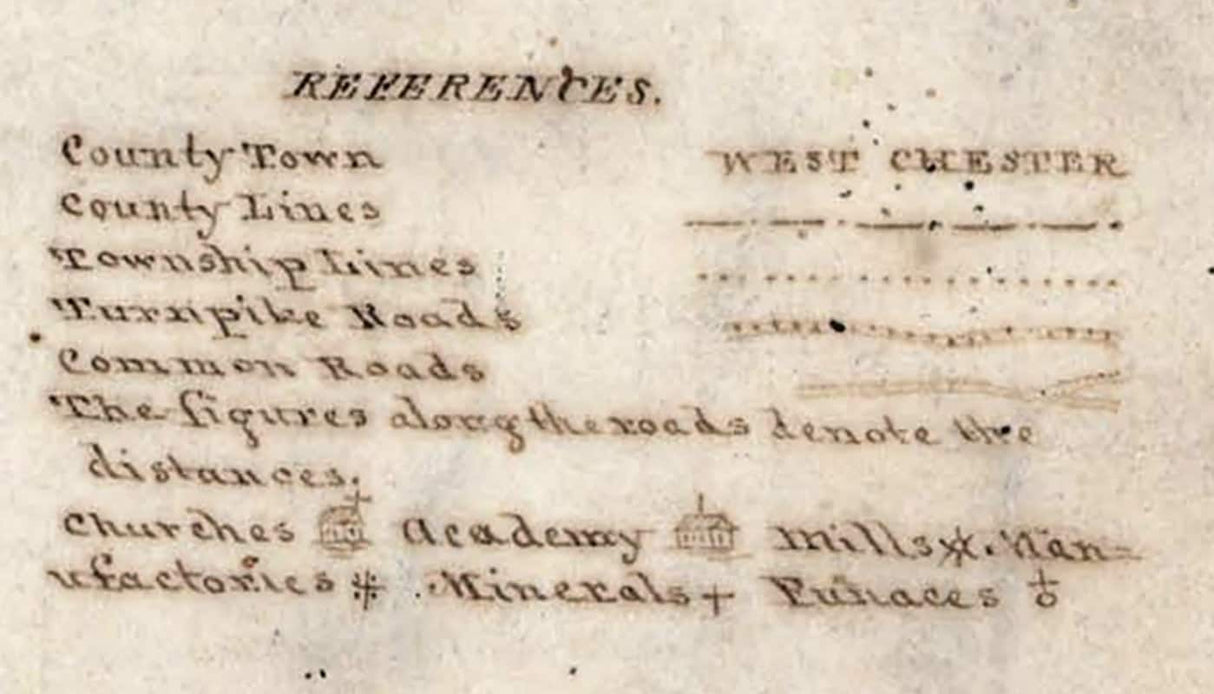 REFERENCES.
County Town WEST CHESTER
County Lines
Township Lines
Turnpike Roads
Common Roads
The figures along the roads denote the
distances.
Churches Academy Mills Man-
ufactories Minerals Funaces